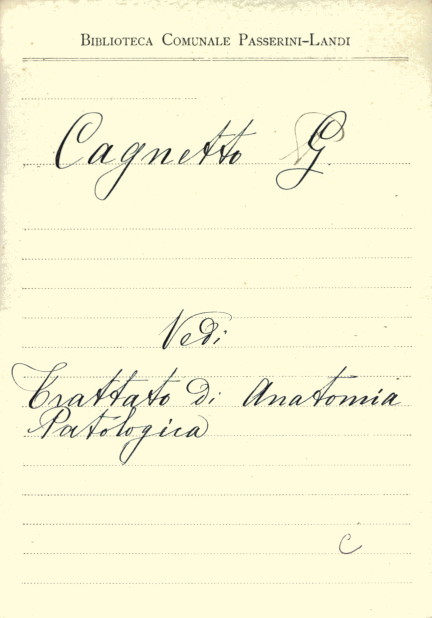 BIBLIOTECA COMUNALE PASSERINI-LANDI
Cagnetto G.
Vedi
Trattato di Anatomia
Patologica
C